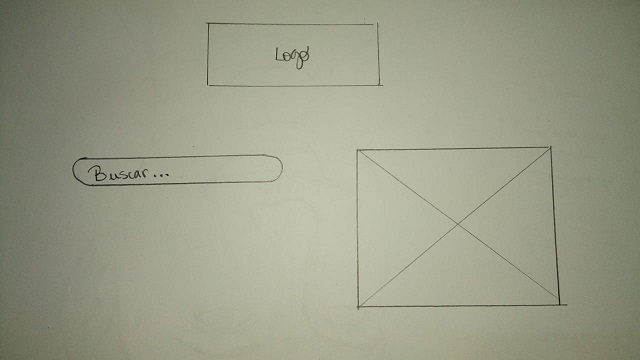 Logo
Buscar...